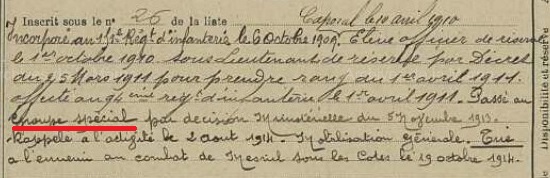 Inscrit sous le n° 26 de la liste Caporal le 10 avril 1910
Incorporé au Régt d'infanterie le 6 Octobre 1909. Elève officer de réserve
le 1er octobre 1910. Sous Lieutenant de réserve par Décret
du 25 Mars 1911 pour prendre rang du 1er avril 1911.
affecté au 94ème régt d'infanterie le 1er avril 1911. Passé au
groupe spécial par décision Ministérielle du 5 Novembre 1913.
Rappelé à l'activité le 2 août 1914. Mobilisation générale. Tué
à l'ennemi au combat de Mesnil sous les Cotes le 19 octobre 1914.
Disponibilité et réserve